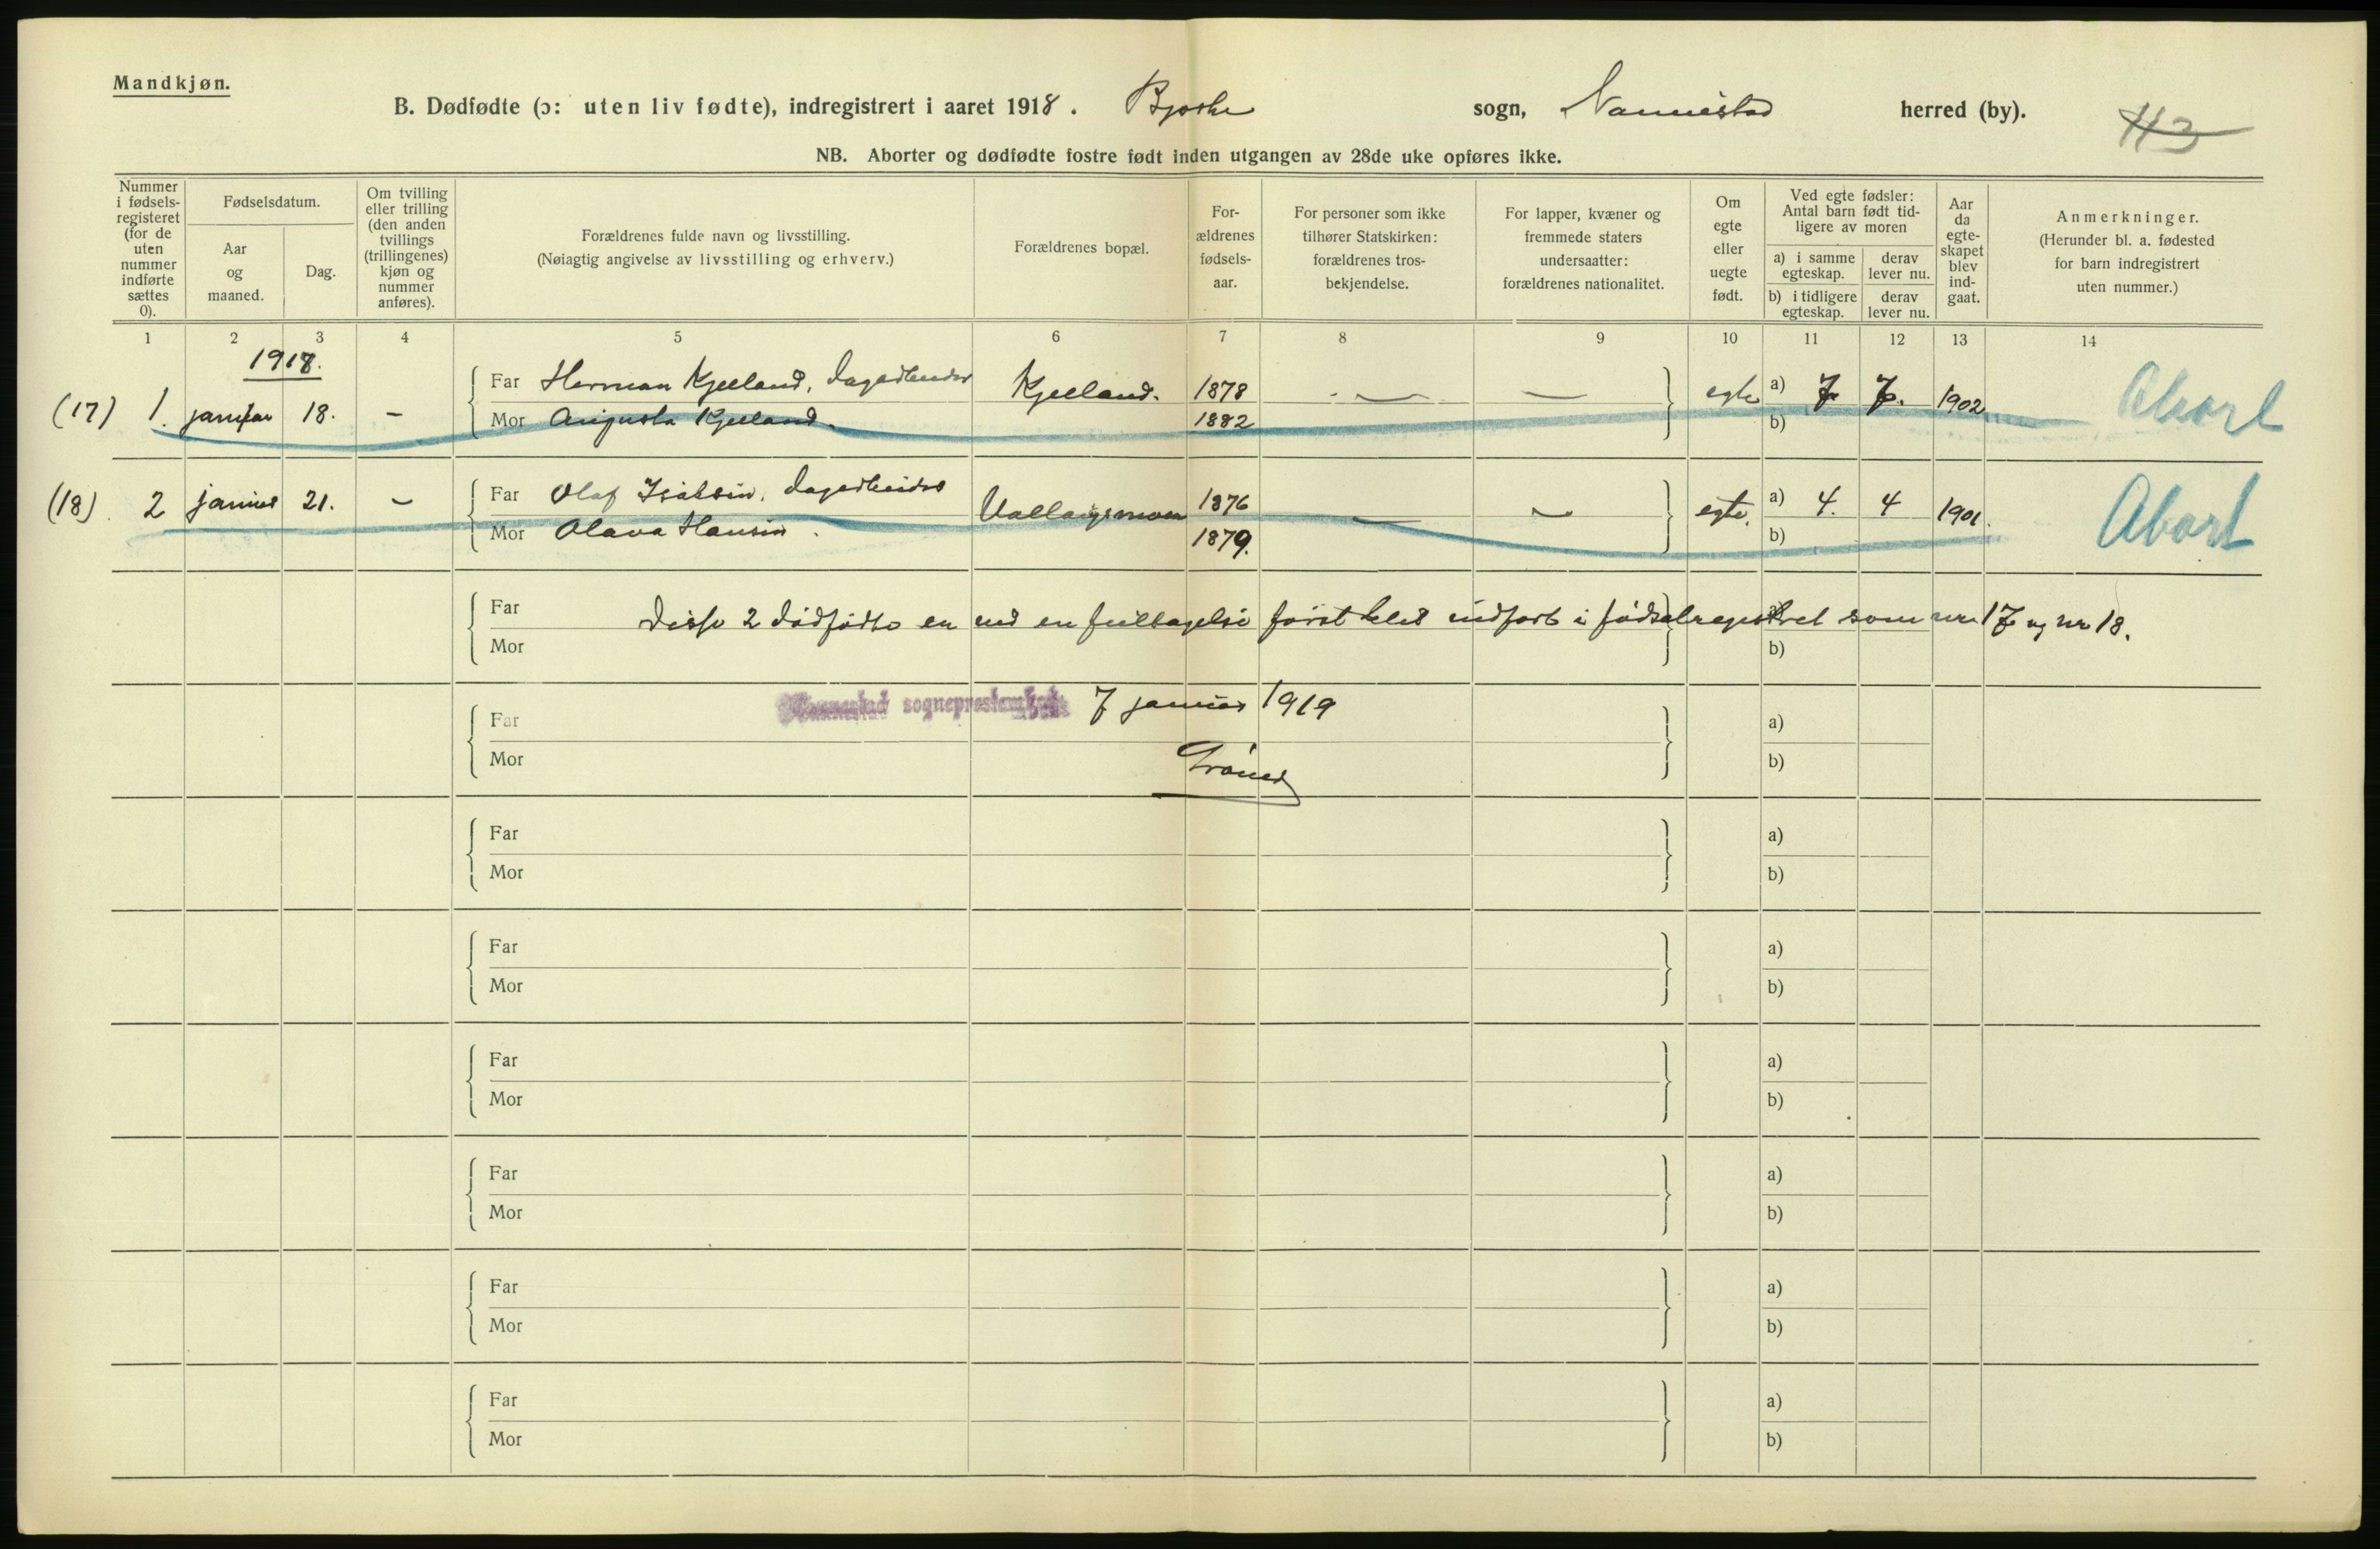 Mandkjøn.
B. Dødfødte (ɔ: uten liv fødte), indregistrert i aaret 1918. Bjerke sogn, Nannestad herred (by).
113
NB. Aborter og dødfødte fostre født inden utgangen av 28de uke opføres ikke.
Nummer i fødsels-registeret (for de uten nummer indførte sættes 0).
Fødselsdatum.
Aar og maaned.
Dag.
Om tvilling eller trilling (den anden tvillings (trillingenes) kjøn og nummer anføres).
Forældrenes fulde navn og livsstilling.
(Nøiagtig angivelse av livsstilling og erhverv.)
Forældrenes bopæl.
For-ældrenes fødsels-aar.
For personer som ikke tilhører Statskirken: forældrenes tros-bekjendelse.
For lapper, kvæner og fremmede staters undersaatter: forældrenes nationalitet.
Om egte eller uegte født.
Ved egte fødsler: Antal barn født tid-ligere av moren
a) i samme egteskap.
derav lever nu.
b) i tidligere egteskap.
derav lever nu.
Aar da egte-skapet blev ind-gaat.
Anmerkninger.
(Herunder bl. a. fødested for barn indregistrert uten nummer.)
1 2 3 4 5 6 7 8 9 10 11 12 13 14
1918.
(17) 1. januar 18. – Far Herman Kjelland, dagarbeider Kjelland. 1878 — — egte a) 7 7. 1902 Abort
Mor Augusta Kjelland. 1882 b)
(18) 2 januar 21. – Far Olaf Isaksen, dagarbeider 1876 — — egte. a) 4. 4 1901. Abort
Mor Olava Hansen. 1879. b)
Far Disse 2 dødfødte er ved en feiltagelse først blit indført i fødselregistret som nr 17 og nr 18.
Mor b)
Nannestad sogneprestembede 7 januar 1919
Far a)
Mor b)
Far a)
Mor b)
Far a)
Mor b)
Far a)
Mor b)
Far a)
Mor b)
Far a)
Mor b)
Far a)
Mor b)